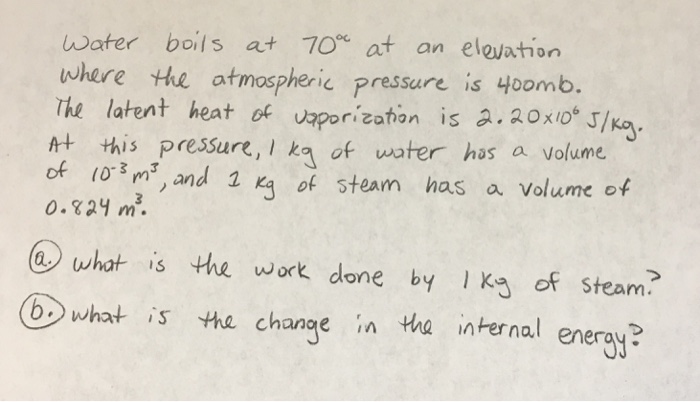 Water boils at 70°C at an elevation
where the atmospheric pressure is 400mb.
The latent heat of vaporization is 2.20x10⁶ J/kg.
At this pressure, 1 kg of water has a volume
of 10⁻³ m³, and 1 kg of steam has a volume of
0.824 m³.
a. what is the work done by 1 kg of steam?
b. what is the change in the internal energy?